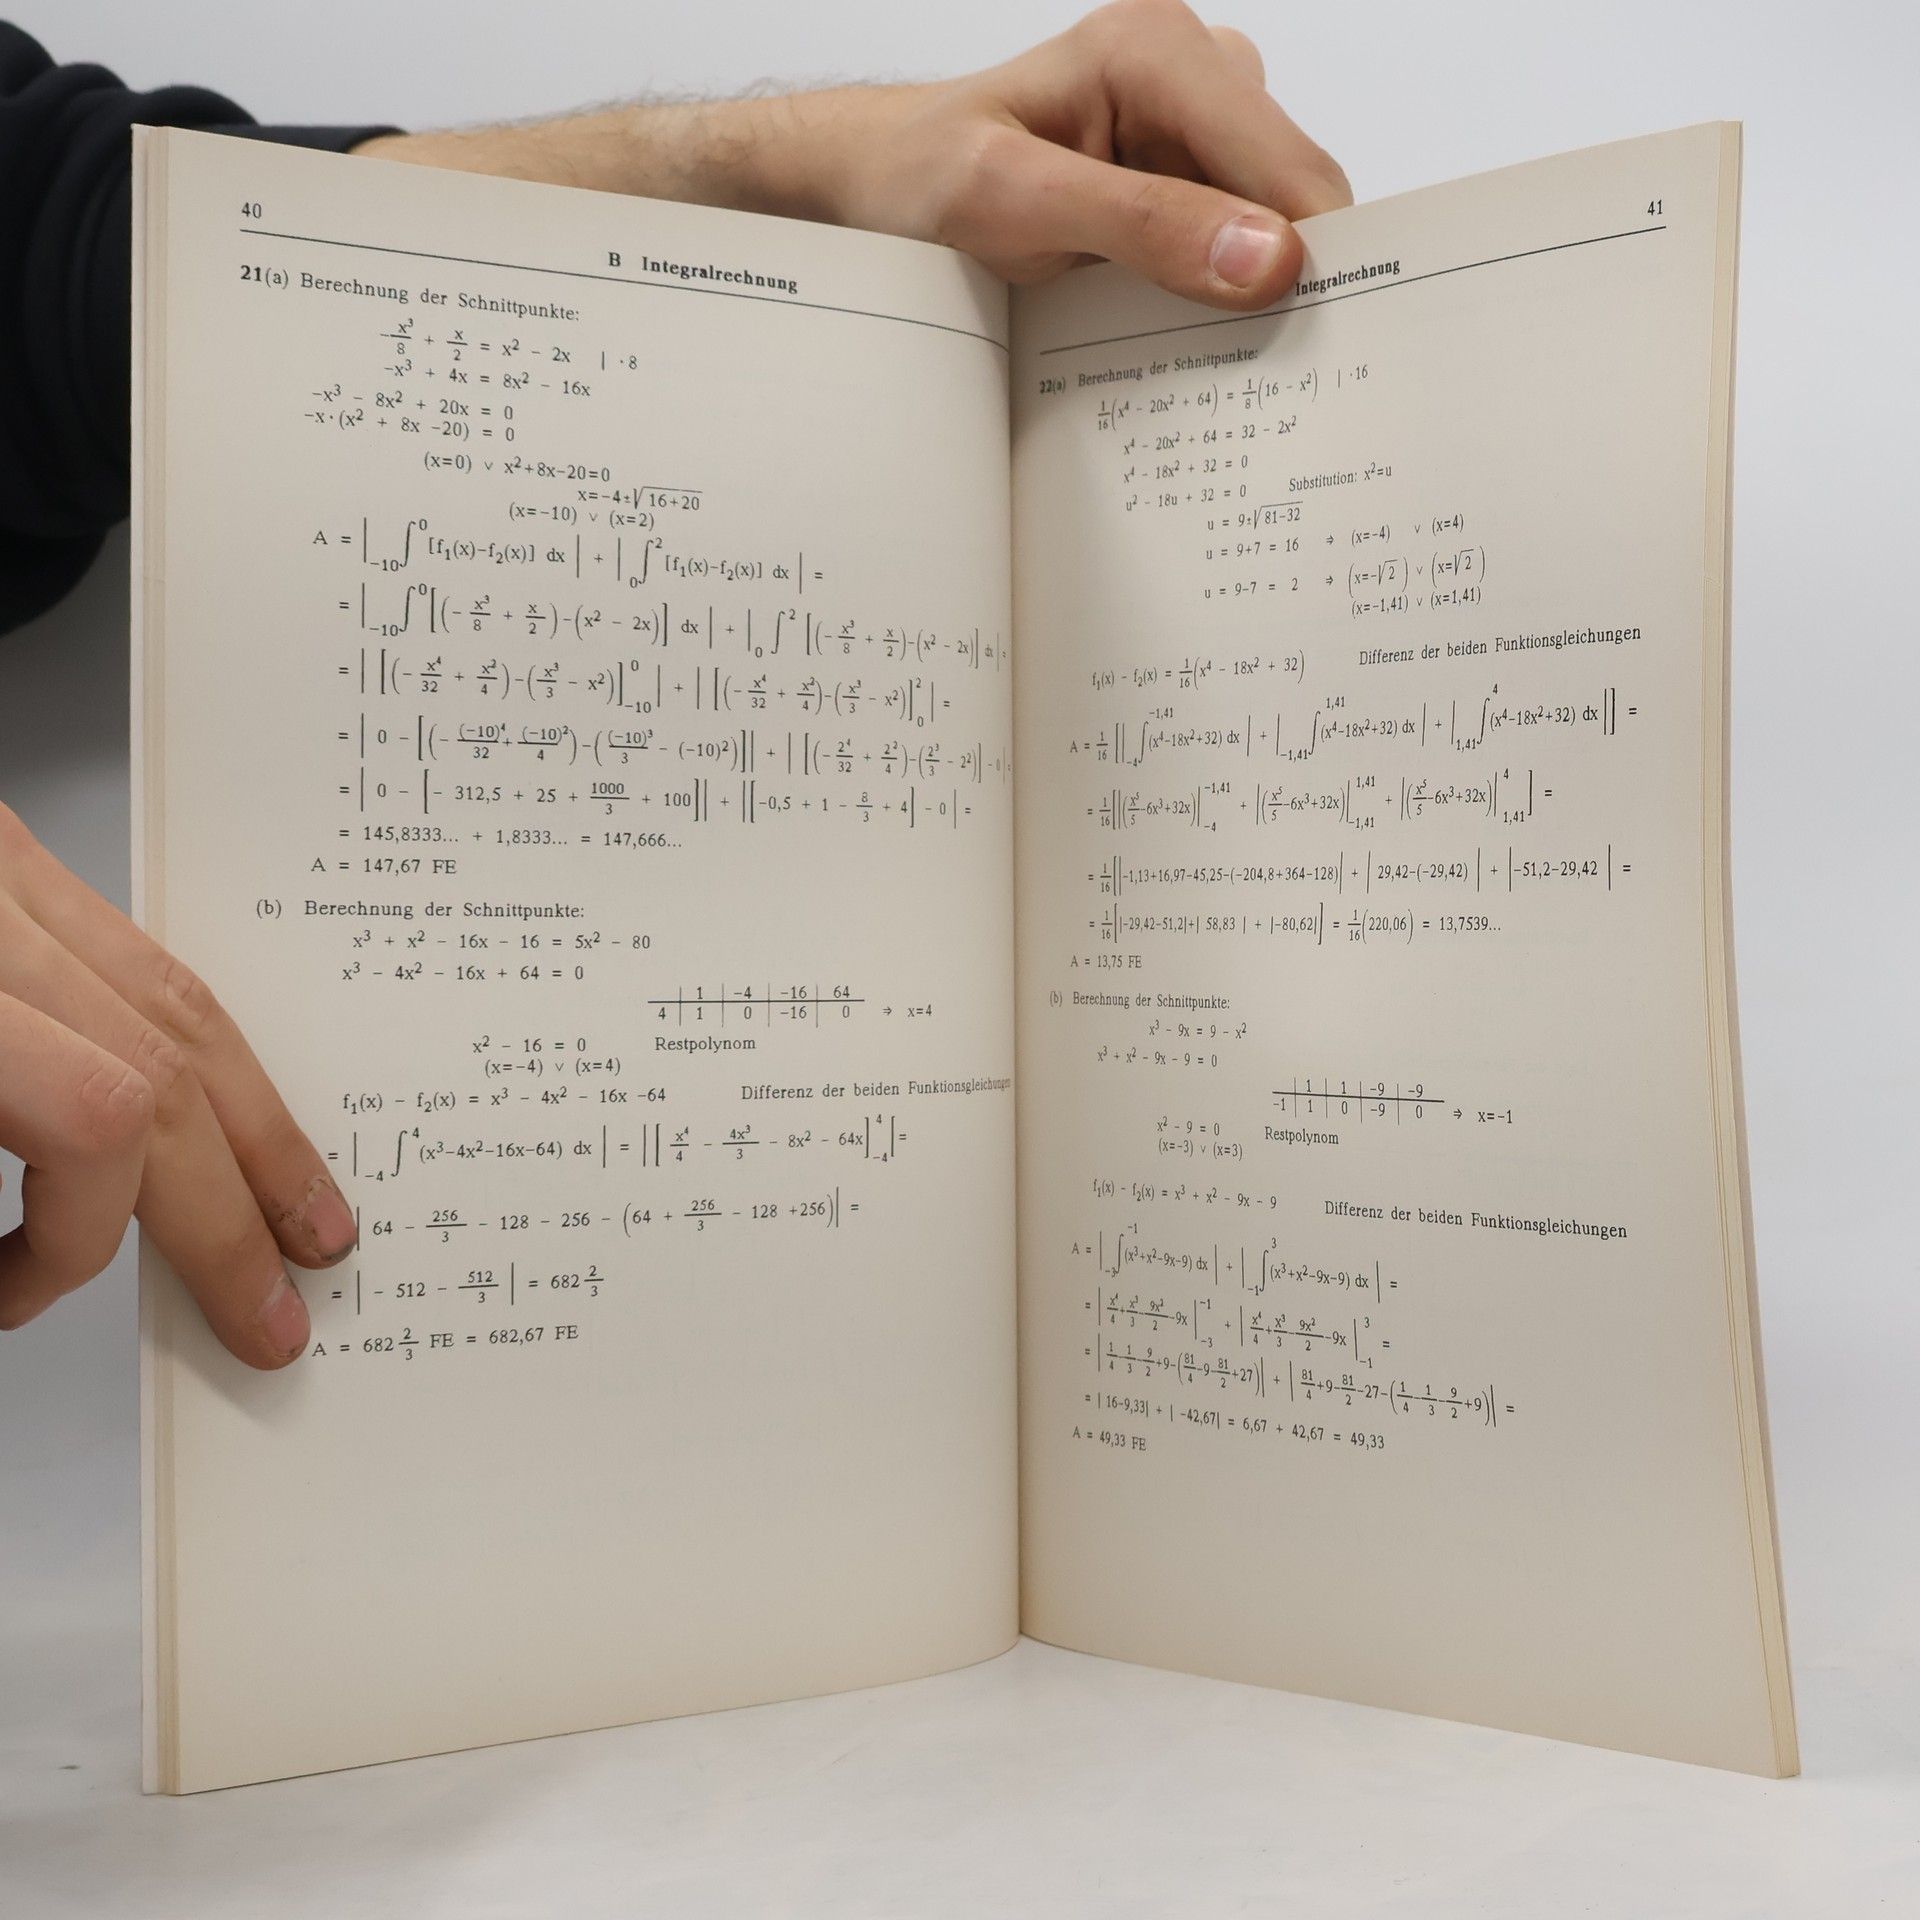 40
B Integralrechnung
21(a) Berechnung der Schnittpunkte:
-x³/8 + x/2 = x² - 2x | ·8
-x³ + 4x = 8x² - 16x
-x³ - 8x² + 20x = 0
-x·(x² + 8x -20) = 0
(x=0) ∨ x²+8x-20=0
x=-4±√(16+20)
(x=-10) ∨ (x=2)
A = |₋₁₀∫⁰ [f₁(x)-f₂(x)] dx | + | ₀∫² [f₁(x)-f₂(x)] dx | =
= |₋₁₀∫⁰[(- x³/8 + x/2)-(x² - 2x)] dx | + |₀∫² [(- x³/8 + x/2)-(x² - 2x)] dx| =
= | [(- x⁴/32 + x²/4)-(x³/3 - x²)]₋₁₀⁰ | + | [(- x⁴/32 + x²/4)-(x³/3 - x²)]₀² | =
= | 0 - [(- (-10)⁴/32 + (-10)²/4)-((-10)³/3 - (-10)²)]| + | [(- 2⁴/32 + 2²/4)-(2³/3 - 2²)] - 0 | =
= | 0 - [- 312,5 + 25 + 1000/3 + 100]| + |[-0,5 + 1 - 8/3 + 4] - 0 | =
= 145,8333... + 1,8333... = 147,666...
A = 147,67 FE
(b) Berechnung der Schnittpunkte:
x³ + x² - 16x - 16 = 5x² - 80
x³ - 4x² - 16x + 64 = 0
| 1 | -4 | -16 | 64
4 | 1 | 0 | -16 | 0 ⇒ x=4
x² - 16 = 0 Restpolynom
(x=-4) ∨ (x=4)
f₁(x) - f₂(x) = x³ - 4x² - 16x -64 Differenz der beiden Funktionsgleichungen
= | ₋₄∫⁴(x³-4x²-16x-64) dx | = |[ x⁴/4 - 4x³/3 - 8x² - 64x]₋₄⁴ |=
| 64 - 256/3 - 128 - 256 - (64 + 256/3 - 128 +256)| =
= | - 512 - 512/3 | = 682 2/3
A = 682 2/3 FE = 682,67 FE
41
Integralrechnung
22(a) Berechnung der Schnittpunkte:
1/16(x⁴ - 20x² + 64) = 1/8(16 - x²) | ·16
x⁴ - 20x² + 64 = 32 - 2x²
x⁴ - 18x² + 32 = 0
u² - 18u + 32 = 0 Substitution: x²=u
u = 9±√(81-32)
u = 9+7 = 16 ⇒ (x=-4) ∨ (x=4)
u = 9-7 = 2 ⇒ (x=-√2) ∨ (x=√2)
(x=-1,41) ∨ (x=1,41)
f₁(x) - f₂(x) = 1/16(x⁴ - 18x² + 32) Differenz der beiden Funktionsgleichungen
A = 1/16 [| ∫ from -4 to -1,41 (x⁴-18x²+32) dx | + | ∫ from -1,41 to 1,41 (x⁴-18x²+32) dx | + | ∫ from 1,41 to 4 (x⁴-18x²+32) dx |] =
= 1/16[|(x⁵/5-6x³+32x)| -4 -1,41 + |(x⁵/5-6x³+32x)| -1,41 1,41 + |(x⁵/5-6x³+32x)| 1,41 4 ] =
= 1/16[|-1,13+16,97-45,25-(-204,8+364-128)| + | 29,42-(-29,42) | + |-51,2-29,42 | =
= 1/16[|-29,42-51,2|+| 58,83 | + |-80,62|] = 1/16(220,06) = 13,7539...
A = 13,75 FE
(b) Berechnung der Schnittpunkte:
x³ - 9x = 9 - x²
x³ + x² - 9x - 9 = 0
| 1 | 1 | -9 | -9
-1 | 1 | 0 | -9 | 0 ⇒ x=-1
x² - 9 = 0 Restpolynom
(x=-3) ∨ (x=3)
f₁(x) - f₂(x) = x³ + x² - 9x - 9 Differenz der beiden Funktionsgleichungen
A = | ₋₃∫⁻¹(x³+x²-9x-9) dx | + | ₋₁∫³(x³+x²-9x-9) dx | =
= | x⁴/4+x³/3-9x²/2-9x |₋₃⁻¹ + | x⁴/4+x³/3-9x²/2-9x |₋₁³ =
= | 1/4-1/3-9/2+9-(81/4-9-81/2+27)| + | 81/4+9-81/2-27-(1/4-1/3-9/2+9)| =
= | 16-9,33| + | -42,67| = 6,67 + 42,67 = 49,33
A = 49,33 FE